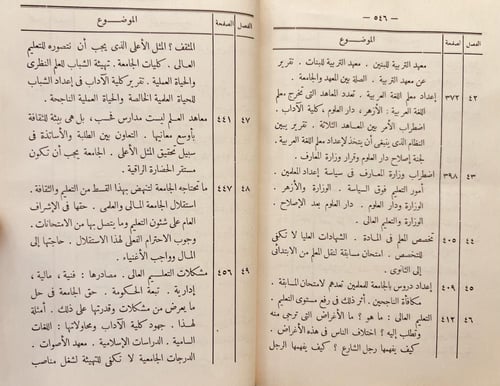 — ٥٤٦ —
الفصل الصفحة الموضوع
معهد التربية للبنين . معهد التربية للبنات . تقرير
عن معهد التربية . الصلة بين المعهد والجامعة .
٤٢ ٣٧٢ إعداد معلم اللغة العربية . تعدد المعاهد التى تخرج معلم
العربية : الأزهر ، دار العلوم ، كلية الآداب .
اضطراب الأمر بين المعاهد الثلاثة . تقرير يبين
النظام الذى ينبغى أن يتخذ لإعداد معلم اللغة العربية .
لجنة إصلاح دار العلوم وقرار وزارة المعارف .
٤٣ ٣٩٨ اضطراب وزارة المعارف فى سياسة إعداد المعلمين .
أمور التعليم فوق السياسة . الوزارة والأزهر .
الوزارة ودار العلوم . دار العلوم بعد الإصلاح .
الوزارة والتعليم العالى .
٤٤ ٤٠٥ تخصص المعلم فى المادة . الشهادات العليا لا تكفى
للتخصص . امتحان مسابقة لنقل المعلم من الابتدائى
إلى الثانوى .
٤٥ ٤٠٩ إعداد دروس بالجامعة للمعلمين تعدهم لامتحان المسابقة .
مكافأة الناجحين . أثر ذلك فى رفع مستوى التعليم .
٤٦ ٤١٢ التعليم العالى : ما هو ؟ ما الأغراض التى ترجى منه
وتطلب إليه ؟ اختلاف الناس فى هذه الأغراض .
كيف يفهمها رجل الشارع ؟ كيف يفهمها الرجل
الفصل الصفحة الموضوع
المثقف ؟ المثل الأعلى الذى يجب أن نتصوره للتعليم
العالى . كليات الجامعة . تهيئة الشباب للعلم النظرى
والحياة العملية . تقرير كلية الآداب فى إعداد الشباب
للحياة العلمية الخالصة والحياة العملية الناجحة .
٤٧ ٤٤١ معاهد العلم ليست مدارس فحسب ، بل هى بيئة للثقافة
بأوسع معانيها . التعاون بين الطلبة والأساتذة فى
سبيل تحقيق المثل الأعلى . الجامعة يجب أن تكون
مستقر الحضارة الراقية .
٤٨ ٤٤٧ ما تحتاجه الجامعة لتنهض بهذا القسط من التعليم والثقافة .
استقلال الجامعة المالى والعلمى . حقها فى الإشراف
العام على شئون التعليم وما يتصل بها من الامتحانات .
وجوب الاحترام الفعلى لهذا الاستقلال . حاجتها إلى
المال وواجب الأغنياء .
٤٩ ٤٥٦ مشكلات التعليم العالى . مصادرها : فنية ، مالية ،
إدارية . تبعة الحكومة . حق الجامعة فى حل
ما يعرض من مشكلات وقدرتها على ذلك . أمثلة
لهذا . جهود كلية الآداب ومحاولاتها : اللغات
السامية . الدراسات الإسلامية . معهد الأصوات .
الدرجات الجامعية لا تكفى للتهيئة لشغل مناصب